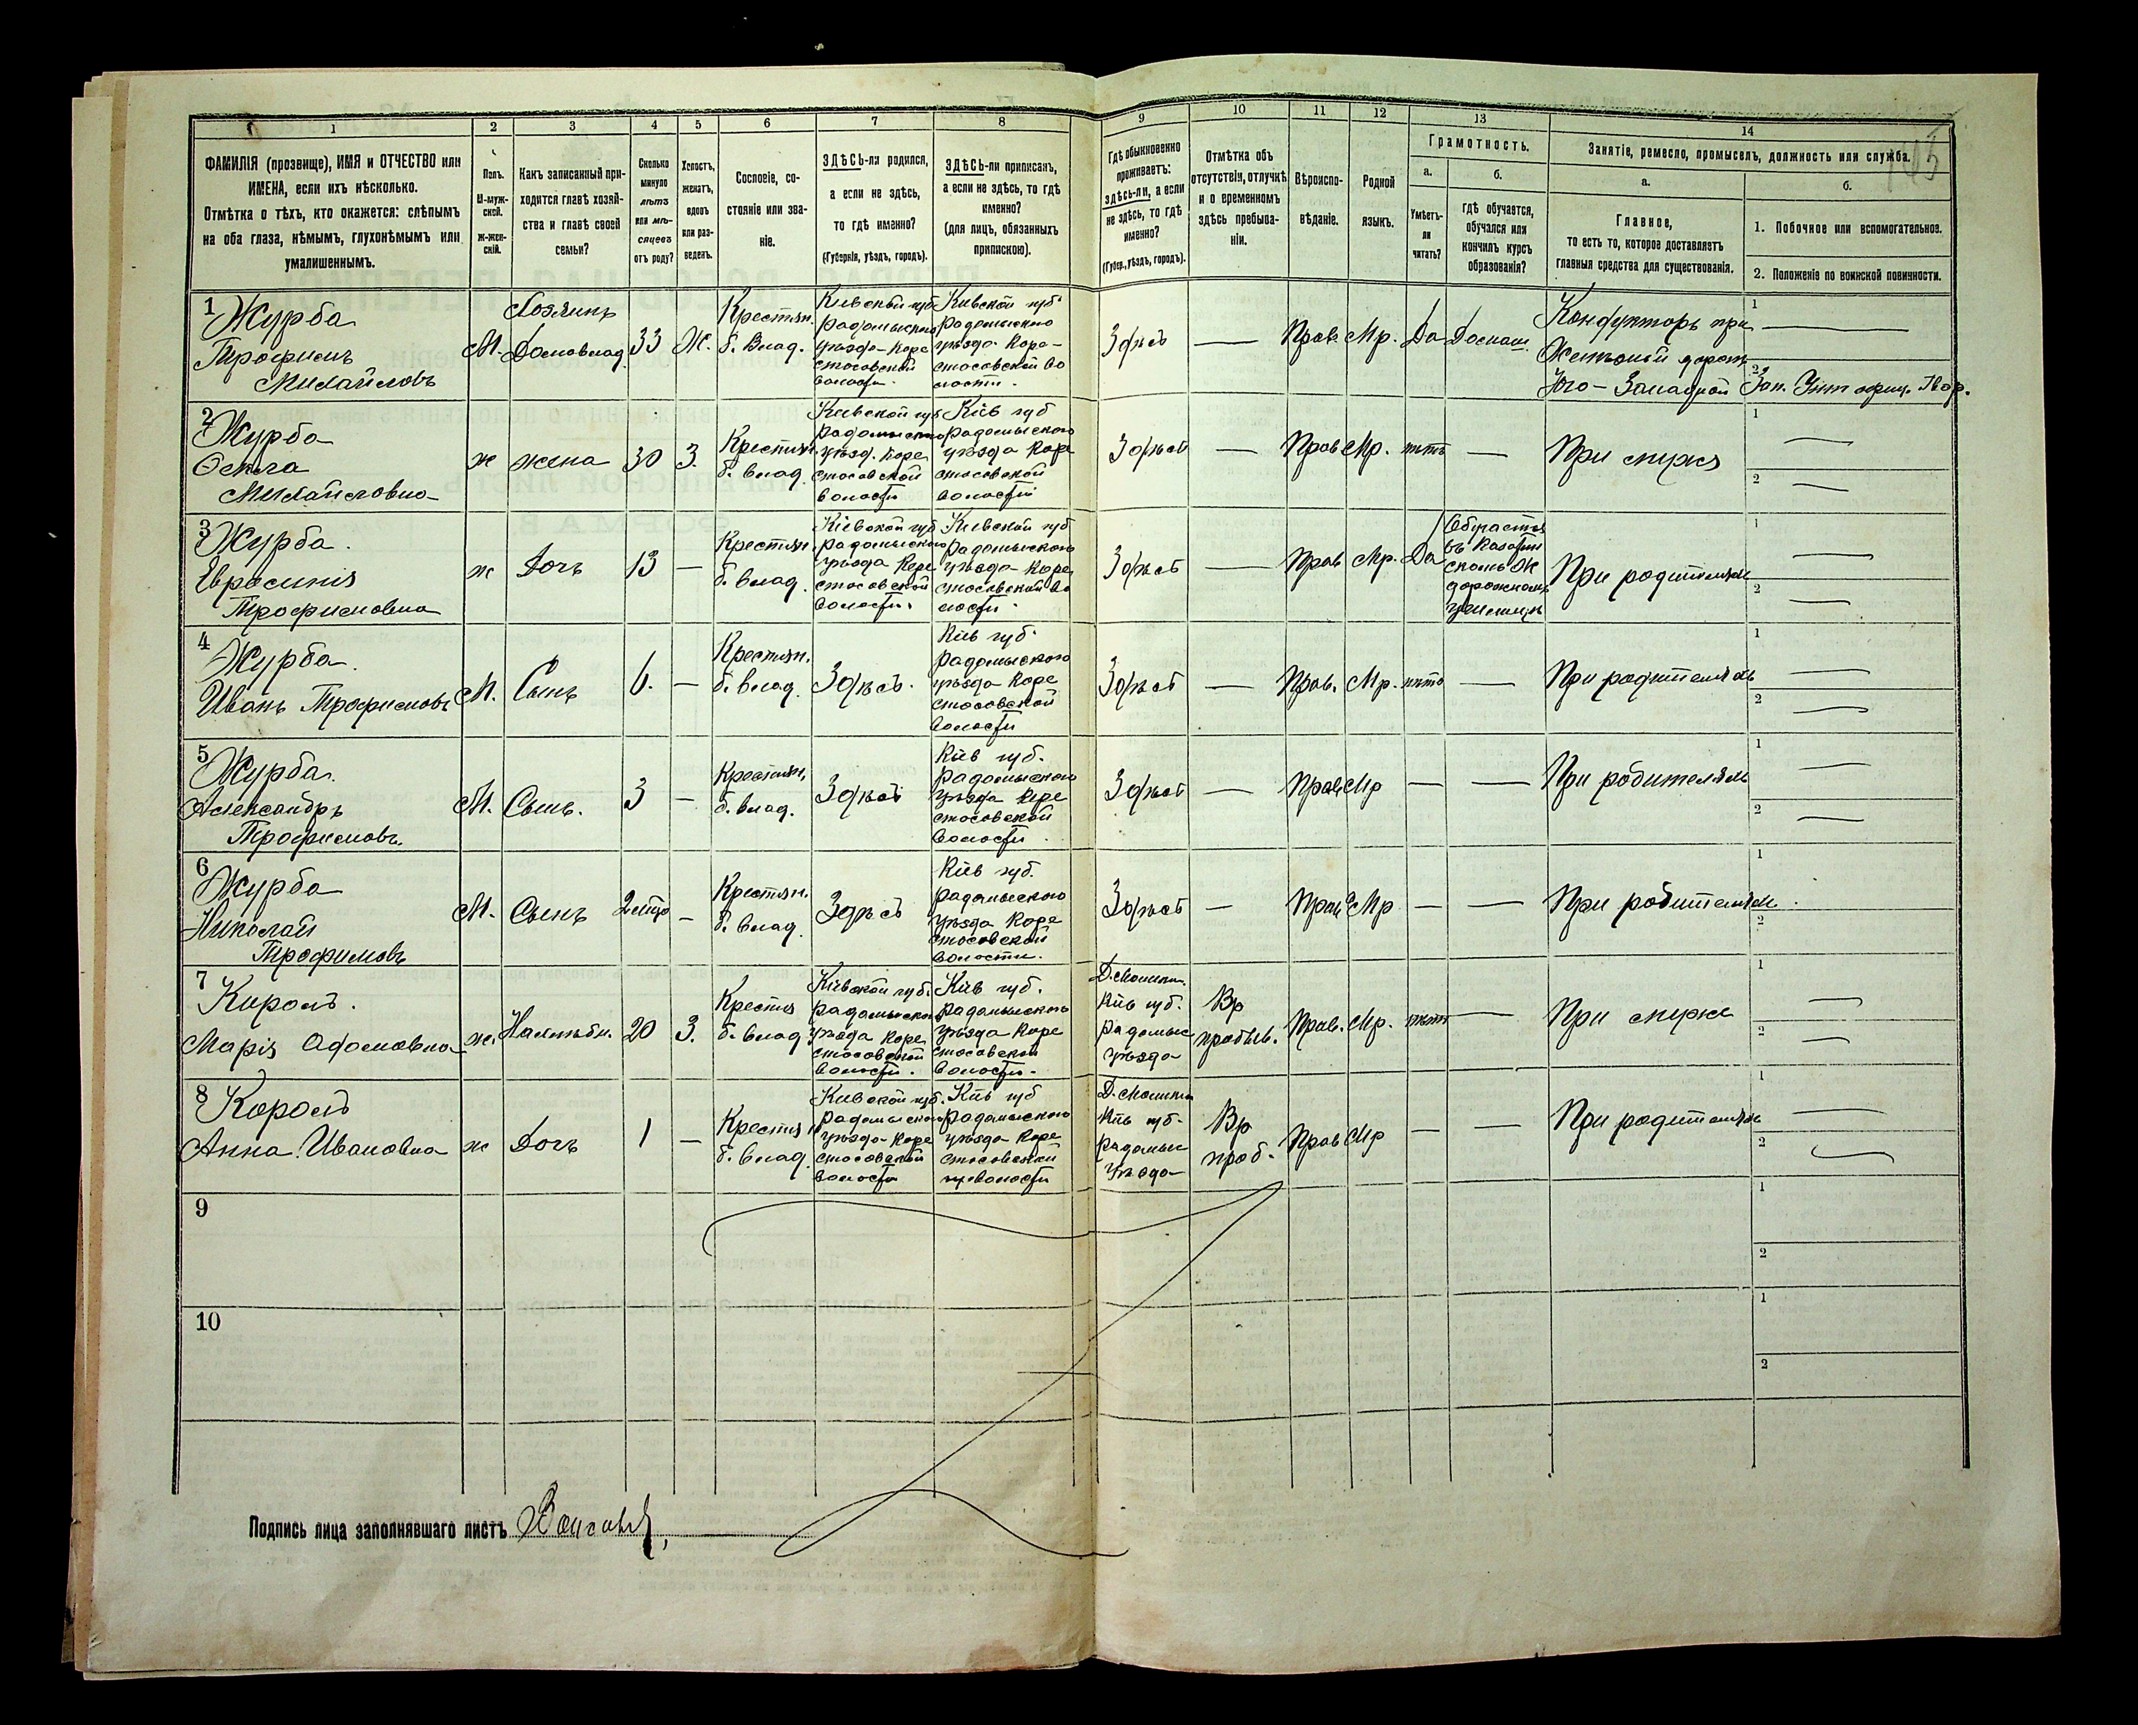 1
2
3
4
5
6
7
8
9
10
11
12
13
14
ФАМИЛІЯ (прозвище), ИМЯ и ОТЧЕСТВО или
ИМЕНА, если ихъ нѣсколько.
Отмѣтка о тѣхъ, кто окажется: слѣпымъ
на оба глаза, нѣмымъ, глухонѣмымъ или
умалишеннымъ.
Полъ.
М-муж-
ской.
Ж-жен-
скій.
Какъ записанный при-
ходится главѣ хозяй-
ства и главѣ своей
семьи?
Сколько
минуло
лѣтъ
или мѣ-
сяцевъ
отъ роду?
Холостъ,
женатъ,
вдовъ
или раз-
веденъ.
Сословіе, со-
стояніе или зва-
ніе.
ЗДѢСЬ-ли родился,
а если не здѣсь,
то гдѣ именно?
(Губернія, уѣздъ, городъ).
ЗДѢСЬ-ли приписанъ,
а если не здѣсь, то гдѣ
именно?
(для лицъ, обязанныхъ
припискою).
Гдѣ обыкновенно
проживаетъ:
здѣсь-ли, а если
не здѣсь, то гдѣ
именно?
(Губер., уѣздъ, городъ).
Отмѣтка объ
отсутствіи, отлучкѣ
и о временномъ
здѣсь пребыва-
ніи.
Вѣроиспо-
вѣданіе.
Родной
языкъ.
Грамотность.
а.
б.
Умѣетъ-
ли
читать?
Гдѣ обучается,
обучался или
кончилъ курсъ
образованія?
Занятіе, ремесло, промыселъ, должность или служба.
а.
б.
Главное,
то есть то, которое доставляетъ
главныя средства для существованія.
1. Побочное или вспомогательное.
2. Положеніе по воинской повинности.
1
Журба
Трофимъ
Михайловъ
М.
Хозяинъ
Домовлад.
33
Ж.
Крестян.
б. Влад.
Киевской губ
радомыского
уѣзда Коро
стосовской
волости.
Киевской губ
радомыского
уѣзда Коро-
стосовской во
лости.
Здѣсь
—
Прав.
Мр.
Да
Домаш.
Кондукторъ при
Желѣзной дорогѣ
Юго-Западной
1
2
Зап. Унт офиц. Гвар.
2
Журба
Михайловна
ж
жена
30
З.
Крестян.
б. влад.
Киевской губ
радомыского
уѣзд. Коро
стосовской
волости
Кіев губ
радомыского
уѣзда Коро
стосовской
волости
Здѣсь
—
Прав
Мр.
нѣтъ
—
При мужѣ
1
2
3
Журба.
Евросинія
Трофимовна
ж
Дочь
13
—
Крестян.
б. влад.
Кіевской губ
радомыского
уѣзда Коро
стосовской
волости.
Киевской губ
радомыского
уѣзда Коро
стосовской во
лости.
Здѣсь
—
Прав
Мр.
Да
Обучается
въ Казатин
скомъ Ж
дорожномъ
училищѣ
При родителях
1
2
4
Журба.
Иванъ Трофимовъ
М.
Сынъ
6.
—
Крестян.
б. влад.
Здѣсь.
Кіев губ.
радомыского
уѣзда Коро
стосовской
волости
Здѣсь
—
Прав.
Мр.
нѣтъ
—
При родителяхъ
1
2
5
Журба.
Александръ
Трофимовъ.
М.
Сынъ.
3
—
Крестян.
б. влад.
Здѣсь
Кіев губ.
радомыского
уѣзда Коро
стосовской
волости
Здѣсь
—
Прав
Мр
—
—
При родителях
1
2
6
Журба
Николай
Трофимовъ
М.
Сынъ
—
Крестян.
б. влад.
Здѣсь
Кіев губ.
радомыского
уѣзда Коро
стосовской
волости.
Здѣсь
—
Прав
Мр
—
—
При родителях.
1
2
7
Король.
Марія Адамовна
ж.
20
З.
Крестян
б. влад.
Кіевской губ.
радомыского
уѣзда Коро
стосовской
волости.
Кіев губ.
радомыского
уѣзда Коро
стосовской
волости.
Кіев губ.
радомыс
уѣзда
Вр
пробыв.
Прав.
Мр.
нѣтъ
—
При мужѣ
1
2
8
Король
Анна Ивановна
ж
Дочь
1
—
Крестян
б. влад.
Киевской губ.
радомыского
уѣзда Коро
стосовской
волости
Кіев губ
радомыского
уѣзда Коро
стосовской
волости
Кіев губ.
Радомыс
уѣзда
Вр
проб.
Прав
Мр
—
—
При родителях
1
2
9
1
2
10
1
2
Подпись лица заполнявшаго листъ